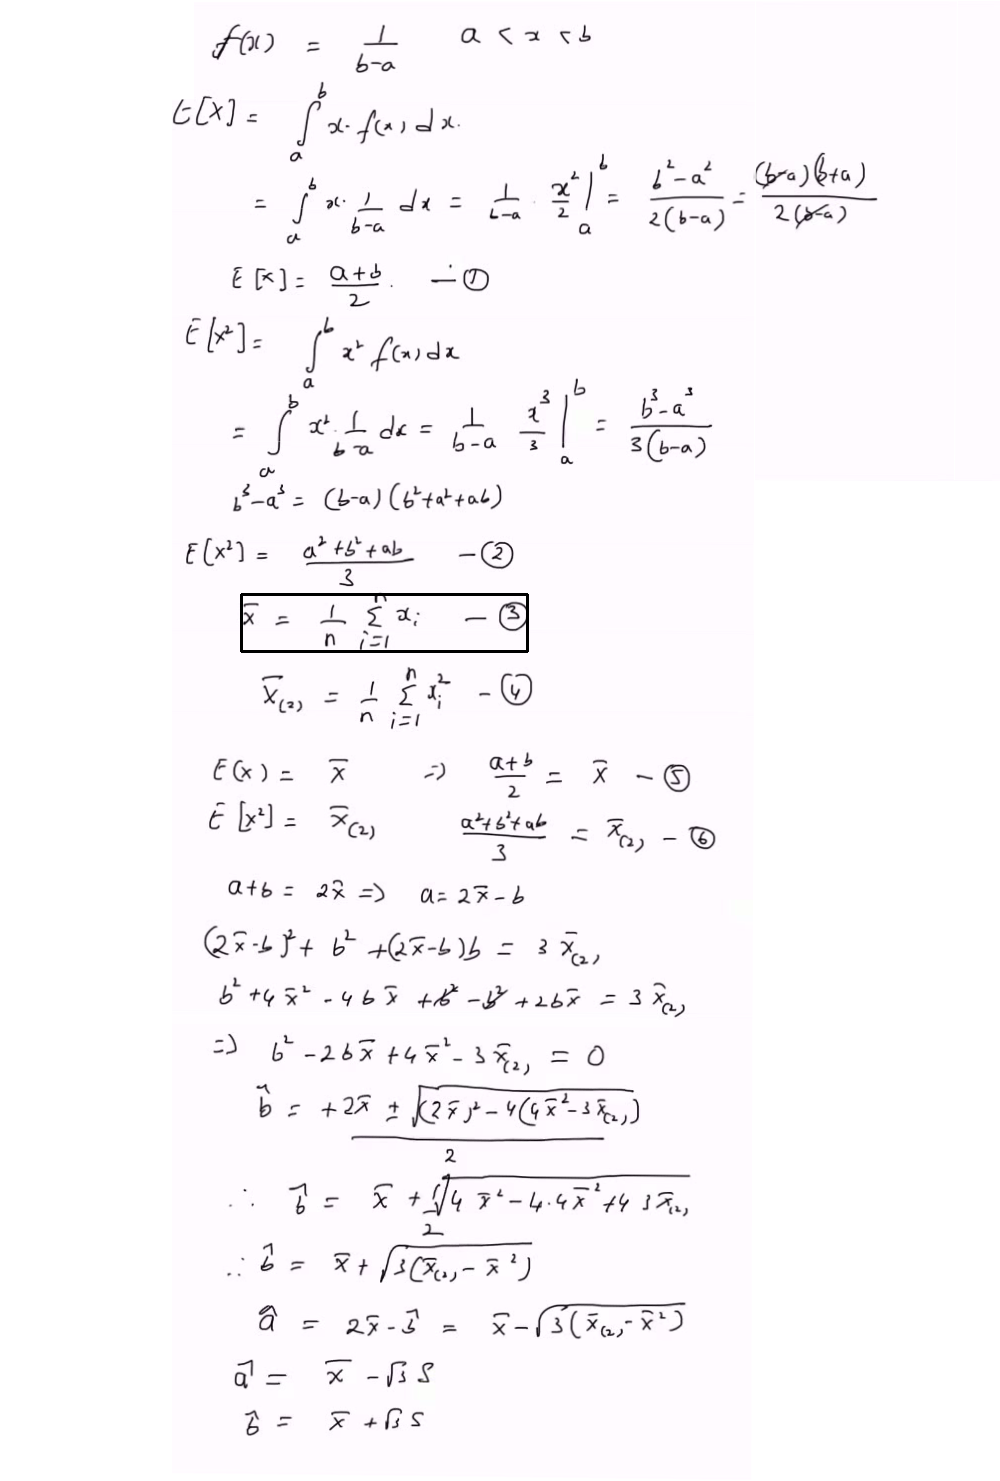 f(x) = 1/(b-a)   a < x < b
E[X] = ∫_a^b x. f(x) dx.
= ∫_a^b x. 1/(b-a) dx = 1/(b-a) . x²/2 |_a^b = (b²-a²)/(2(b-a)) = (b-a)(b+a)/(2(b-a))
E[x] = (a+b)/2. — ①
E[x²] = ∫_a^b x² f(x) dx
= ∫_a^b x². 1/(b-a) dx = 1/(b-a) x³/3 |_a^b = (b³-a³)/(3(b-a))
b³-a³ = (b-a)(b²+a²+ab)
E[x²] = (a²+b²+ab)/3 — ②
x̄ = 1/n Σ_{i=1}^n x_i — ③
x̄_(2) = 1/n Σ_{i=1}^n x_i² — ④
E(x) = x̄ => (a+b)/2 = x̄ — ⑤
E[x²] = x̄_(2)   (a²+b²+ab)/3 = x̄_(2) — ⑥
a+b = 2x̄ => a = 2x̄-b
(2x̄-b)² + b² + (2x̄-b)b = 3 x̄_(2)
b² + 4x̄² - 4bx̄ + b² - b² + 2bx̄ = 3 x̄_(2)
=> b² - 2bx̄ + 4x̄² - 3x̄_(2) = 0
b̂ = (+2x̄ ± √((2x̄)² - 4(4x̄² - 3x̄_(2))))/2
∴ b̂ = x̄ + √(4x̄² - 4.4x̄² + 4 3x̄_(2))/2
∴ b̂ = x̄ + √(3(x̄_(2) - x̄²))
â = 2x̄ - b̂ = x̄ - √(3(x̄_(2) - x̄²))
â = x̄ - √3 S
b̂ = x̄ + √3 S